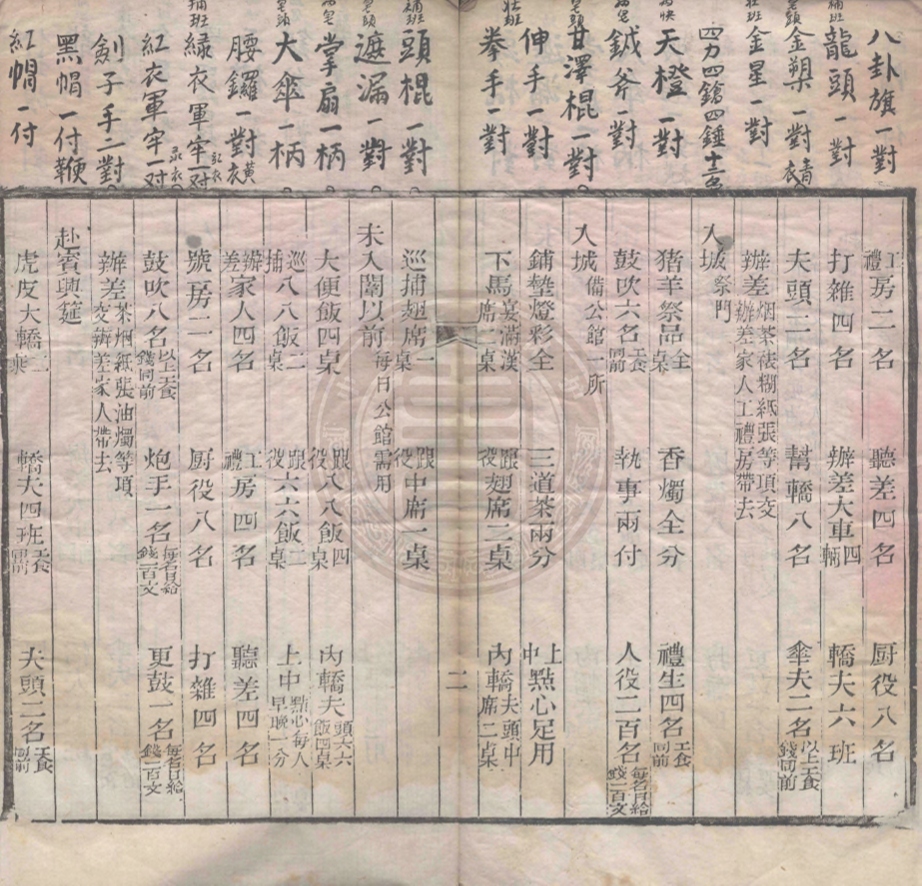 八卦旗一對
龍頭一對
金槊一對 青衣
金星一對
四刀四鎗四錘
天橙一對
鉞斧一對
甘澤棍一對
伸手一對
拳手一對
頭棍一對
遮漏一對
掌扇一柄
大傘一柄
腰鑼一對 黃衣
緑衣軍牢一对 紅衣
紅衣軍牢一对
劊子手二對
黑帽一付鞭
紅帽一付
禮房二名 聽差四名 厨役八名
打雜四名 辦差大車四輛 轎夫六班
夫頭二名 幫轎八名 傘夫二名 以上工食錢同前
辦差 烟茶裱糊紙張等項交辦差家人工禮房帶去
入城 祭門
猪羊祭品全桌 香燭全分 禮生四名 工食同前
鼓吹六名 工食同前 執事兩付 人役二百名 每名日給錢一百文
入城 備公館一所
鋪墊燈彩全 三道茶兩分 上中點心足用
下馬宴滿漢席二桌 跟役翅席二桌 內轎夫頭中席二桌
二
巡捕翅席一桌 跟役中席一桌
未入闈以前 每日公館需用
大便飯四桌 跟役八八飯四桌 內轎夫頭六六飯四桌
巡捕八八飯二桌 跟役六六飯二桌 上中點心每人早晚一分
辦差家人四名 工禮房四名 聽差四名
號房二名 厨役八名 打雜四名
鼓吹八名 以上工食錢同前 炮手一名 每名日給錢一百文 更鼓一名 每名日給錢一百文
辦差 茶烟紙張油燭等項交辦差家人帶去
赴賓興筵
虎皮大轎二乘 轎夫四班 工食同前 夫頭二名 工食同前